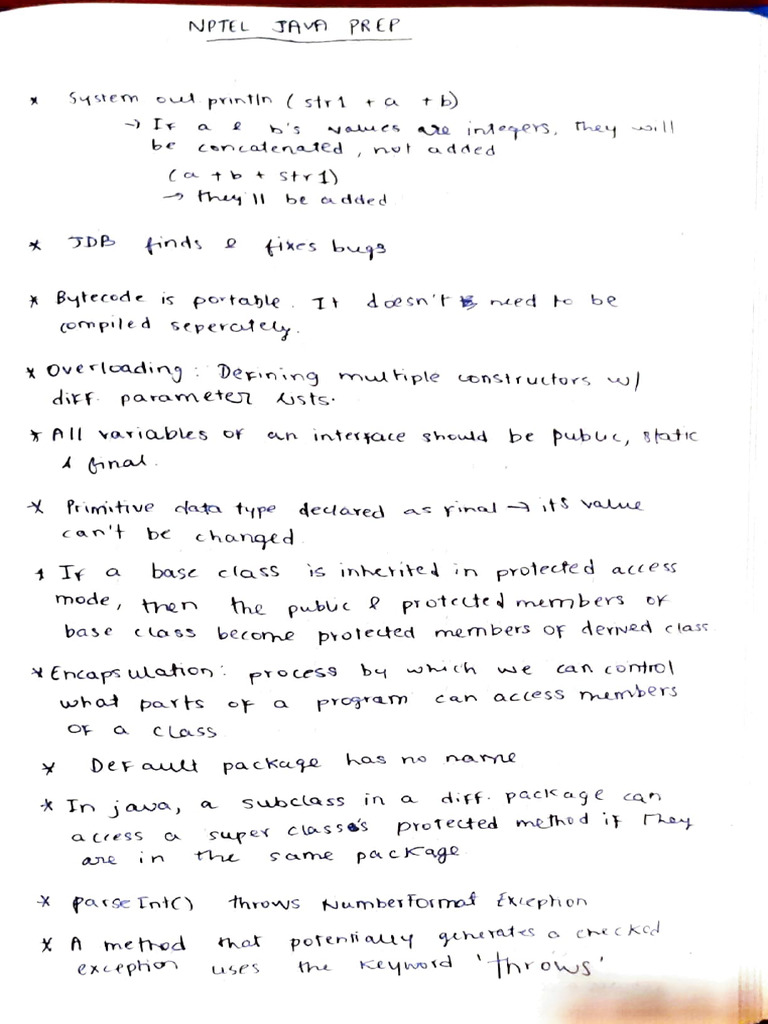 NPTEL JAVA PREP
* System out println (str1 + a + b)
→ If a & b's values are integers, they will
be concatenated, not added
(a + b + str1)
→ they'll be added
* JDB finds & fixes bugs
* Bytecode is portable. It doesn't need to be
compiled seperately.
* Overloading: Defining multiple constructors w/
diff. parameter lists.
* All variables of an interface should be public, static
& final.
* Primitive data type declared as final → its value
can't be changed
* If a base class is inherited in protected access
mode, then the public & protected members of
base class become protected members of derived class
* Encapsulation: process by which we can control
what parts of a program can access members
of a class
* Default package has no name
* In java, a subclass in a diff. package can
access a super class's protected method if they
are in the same package
* parseInt() throws NumberFormat Exception
* A method that potentially generates a checked
exception uses the keyword 'throws'